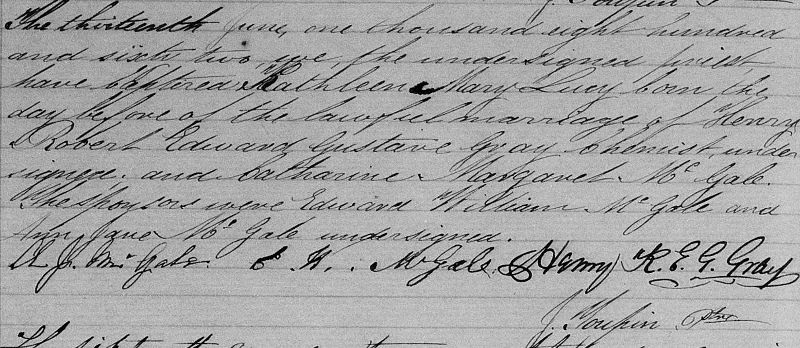 J. Toupin P
The thirteenth June, one thousand eight hundred
and sixty two, we, the undersigned priest
have baptized Kathleen Mary Lucy born the
day before of the lawful marriage of Henry
Robert Edward Gustave Gray Chemist, under
signed. and Catharine Margaret McGale.
The sponsors were Edward William McGale and
Ann Jane McGale undersigned.
A. J. McGale. E W. McGale. Henry R. E. G. Gray
J. Toupin Ptre